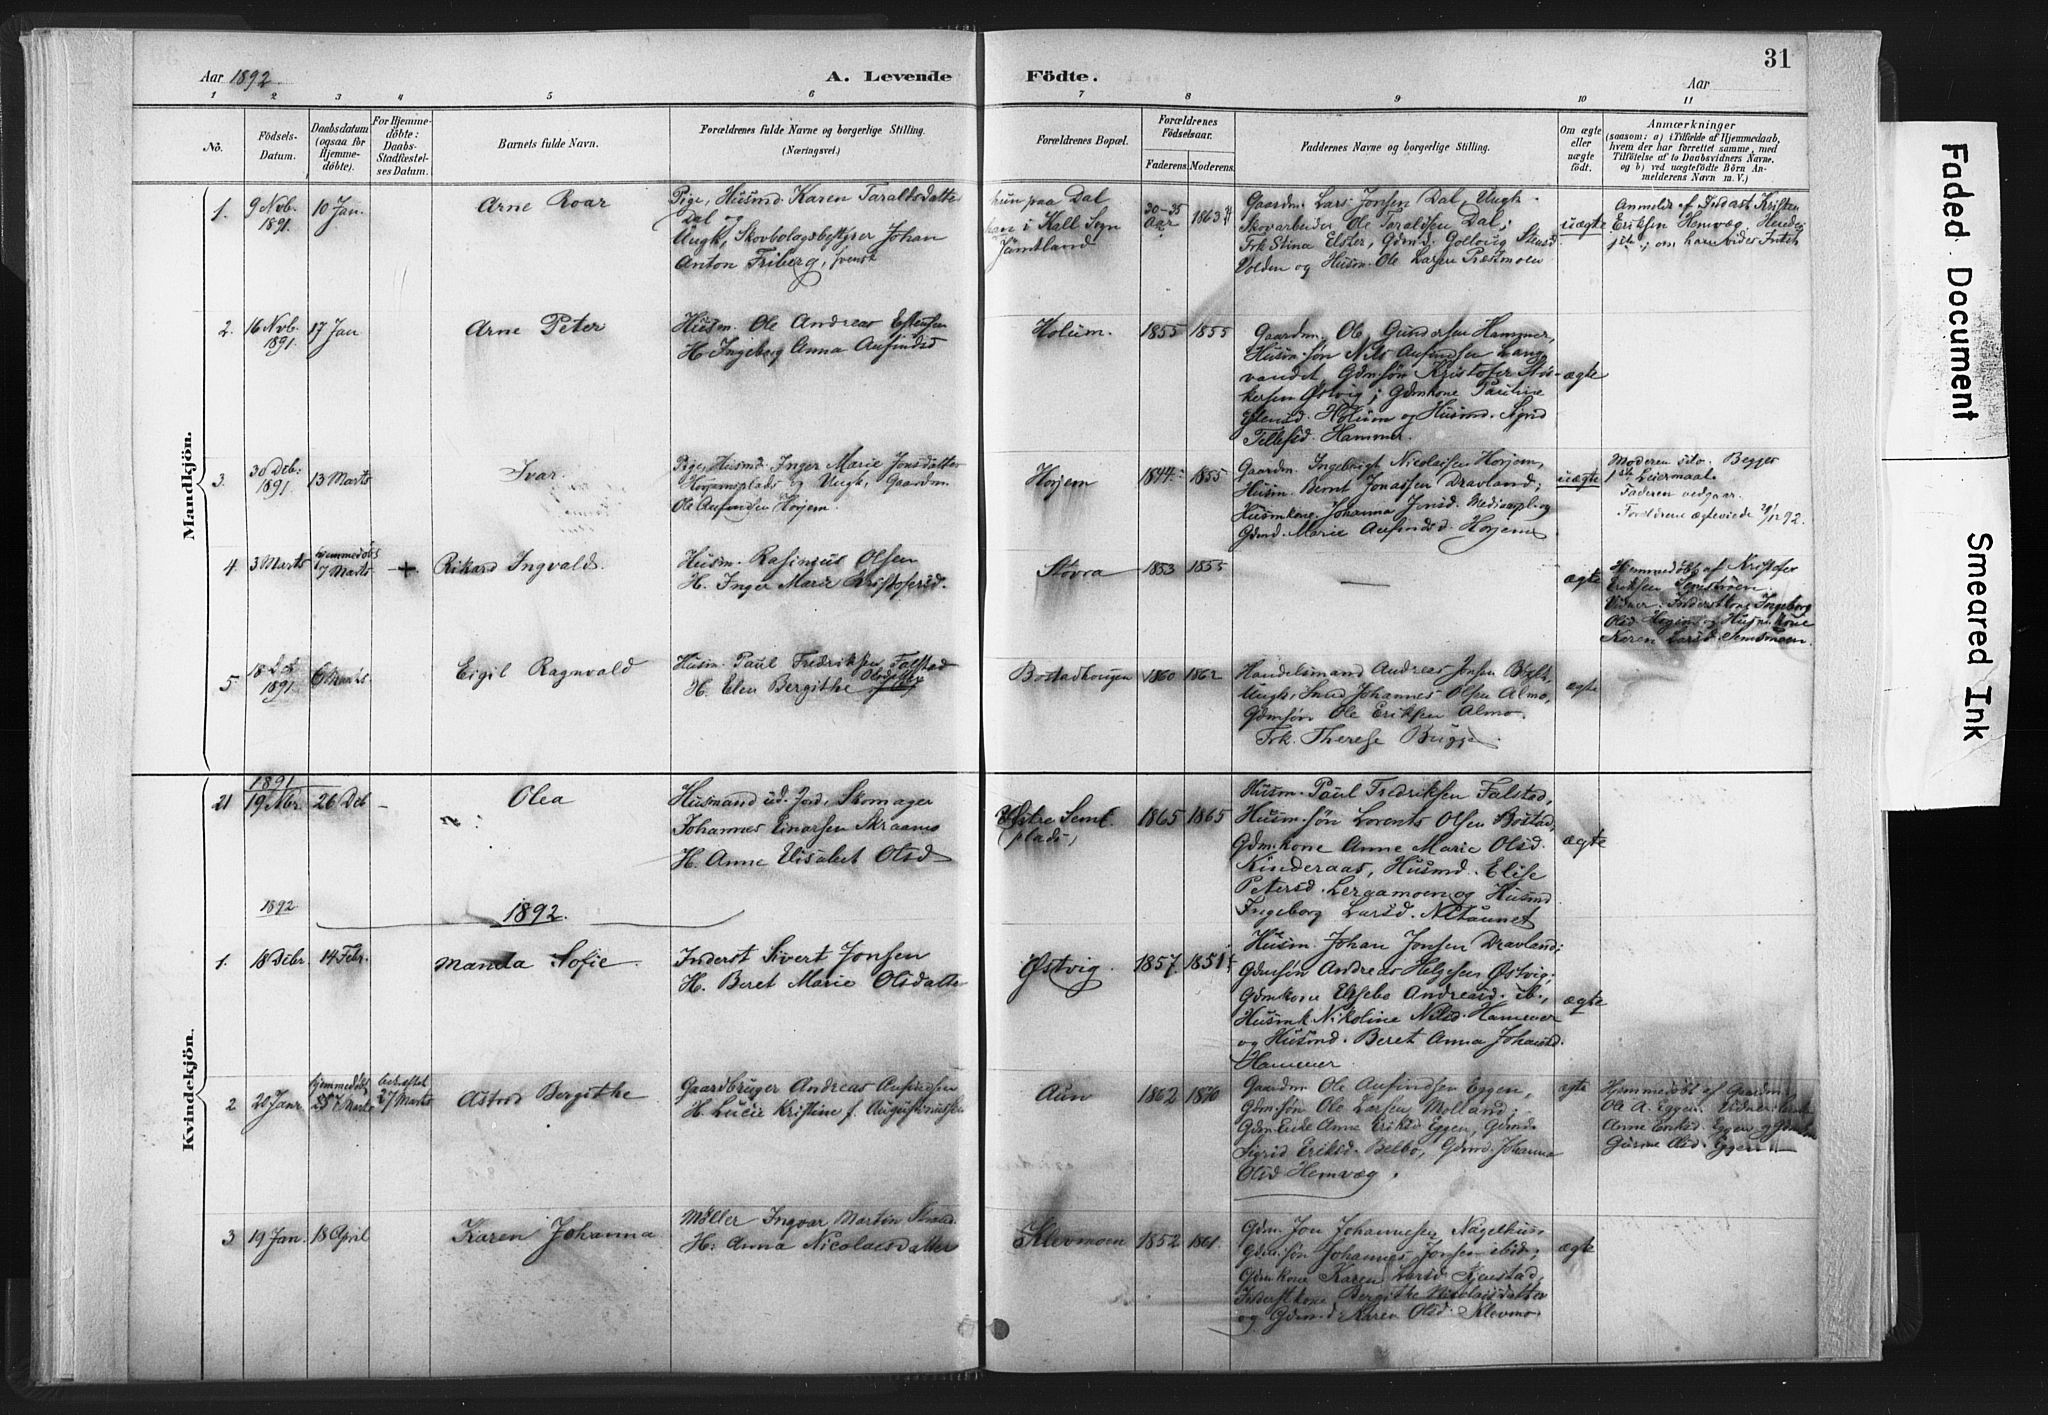 31
Aar 1892
A. Levende
Födte.
Aar
1 2 3 4 5 6 7 8 9 10 11
No.
Födsels-Datum.
Daabsdatum (ogsaa for Hjemmedöbte).
For Hjemmedöbte: Daabs-Stadfæstelses Datum.
Barnets fulde Navn.
Forældrenes fulde Navne og borgerlige Stilling.
(Næringsvei.)
Forældrenes Bopæl.
Forældrenes Födselsaar.
Faderens. Moderens.
Faddernes Navne og borgerlige Stilling.
Om ægte eller uægte födt.
Anmærkninger
(saasom: a) i Tilfælde af Hjemmedaab, hvem der har forrettet samme, med Tilföielse af to Daabsvidners Navne. og b) ved uægtefödte Börn Anmelderens Navn m. V.)
Mandkjön.
1. 9 Nvb. 1891. 10 Jan. Arne Roar
Pige, Husmd. Karen Taraldsdatter
Dal og
Ungk. Skovbolagsbestyrer Johan
Anton Friberg, svensk
hun paa Dal
han i Kall Sogn
Jämtland
30-35 Aar 1863
Gaardm. Lars Jonsen Dal, Ungk.
Skovarbeider Ole Taraldsen Dal,
Frk Stina Elster, Gdmd.
Volden og Husm. Ole Larsen Præstmoen
uægte
2. 16 Nvb. 1891. 17 Jan Arne Peter
Husm. Ole Andreas Estensen
H. Ingeborg Anna Anfindsd
Holum. 1855 1855
Gaardm. Ole Gundersen Hammer,
Husm.søn Nils Anfindsen Lang-
vandet, Gdmsøn Kristofer
Østvig; Gdmkone Pauline
Estensd. Holum og Husmd. Sigrid
Hammer.
ægte
3. 30 Deb. 1891. 13 Marts Ivar.
Pige, Husmd. Inger Marie Jonsdatter
Horjemsplads og Ungk., Gaardm.
Ole Anfindsen Horjem.
Horjem 1844. 1855
Gaardm. Ingebrigt Nicolaisen Horjem,
Husm. Bernt Jonassen Dravland;
Husmkone. Johanna Jonsd.
Gdmd. Marie Anfindsd. Horjem
uægte
Moderen
1ste Leiermaal.
Faderen vedgaar.
Forældrene ægteviede 92.
4 3 Marts hjemmedøbt 7 Marts + Rikard Ingvald.
Husm. Rasmus Olsen
H. Inger Marie Kristofersd.
Støvra 1853 1855
—
ægte
Hjemmedøbt af Kristofer
Eriksen Semsmoen.
Vidner: Inderstkone Ingeborg
Olsd. og Husm.kone
Karen Larsd. Semsmoen.
5 18 Deb 1891 6 Marts Eigil Ragnvald
Husm. Paul Fredriksen Falstad
H. Elen Bergithe Olsdatter
Bostadhougen 1860 1862
Handelsmand Andreas Jensen
Ungk, Johannes Olsen Almo,
Gdmsøn Ole Eriksen Almo.
Frk. Therese Bugge
ægte
Kvindekjön.
1891
21 19 Nbr. 26 Deb - Olea
Husmand ud. Jord, Skomager
Johannes Einarsen Skraamo
H. Anne Elisabet Olsd
Vestre Seml.
(plads)
1865 1865
Husm. Paul Fredriksen Falstad,
Husm.søn Lorents Olsen Bostad,
Gdm.kone Anne Marie Olsd.
Kinderaas, Husmd. Elise
Petersd. Lergamoen og Husmd
Ingeborg Larsd.
ægte
1892 1892.
1. 18 Debr 14 Febr. Manda Sofie.
Inderst Sivert Jonsen
H. Beret Marie Olsdatter
Østvig. 1857. 1851
Husm. Johan Jonsen Dravland;
Gdmsøn Andreas Helgesen Østvig;
Gdmkone Andreasd. ib.,
Husmk. Nikoline Nilsd. Hammer
og Husmd. Beret Anna Johansd.
Hammer
ægte
2 20 Janr hjemmedøbt Marts bekræftet 27 Marts Astrid Bergithe
Gaardbruger Andreas Anfindsen
H. Lucie Kristine f. Augustinussen
Aun 1862 1870
Gaardm Ole Anfindsen Eggen,
Gdm.søn Ole Larsen Molland;
Gdm Enke Anne Eriksd Eggen, Gdmd.
Sigrid Eriksd. Belbo, Gdmd. Johanna
Olsd Hemvæg.
ægte
Hjemmedøbt af Gaardm.
Ole A. Eggen. Vidner
Anne Eriksd. Eggen og
Olsd. Eggen
3 19 Jan. 18 April Karen Johanna
Møller Ingvar Martin
H. Anna Nicolaisdatter
Klevmoen 1852 1861.
Gdm. Jon Johannesen
Gdm.søn Johannes Jonsen ibid;
Gdm.kone Karen Larsd
Inderstkone Bergithe Nikolaisdatter
og Gdmd Karen Olsd. Klevmo.
ægte
Faded Document
Smeared Ink